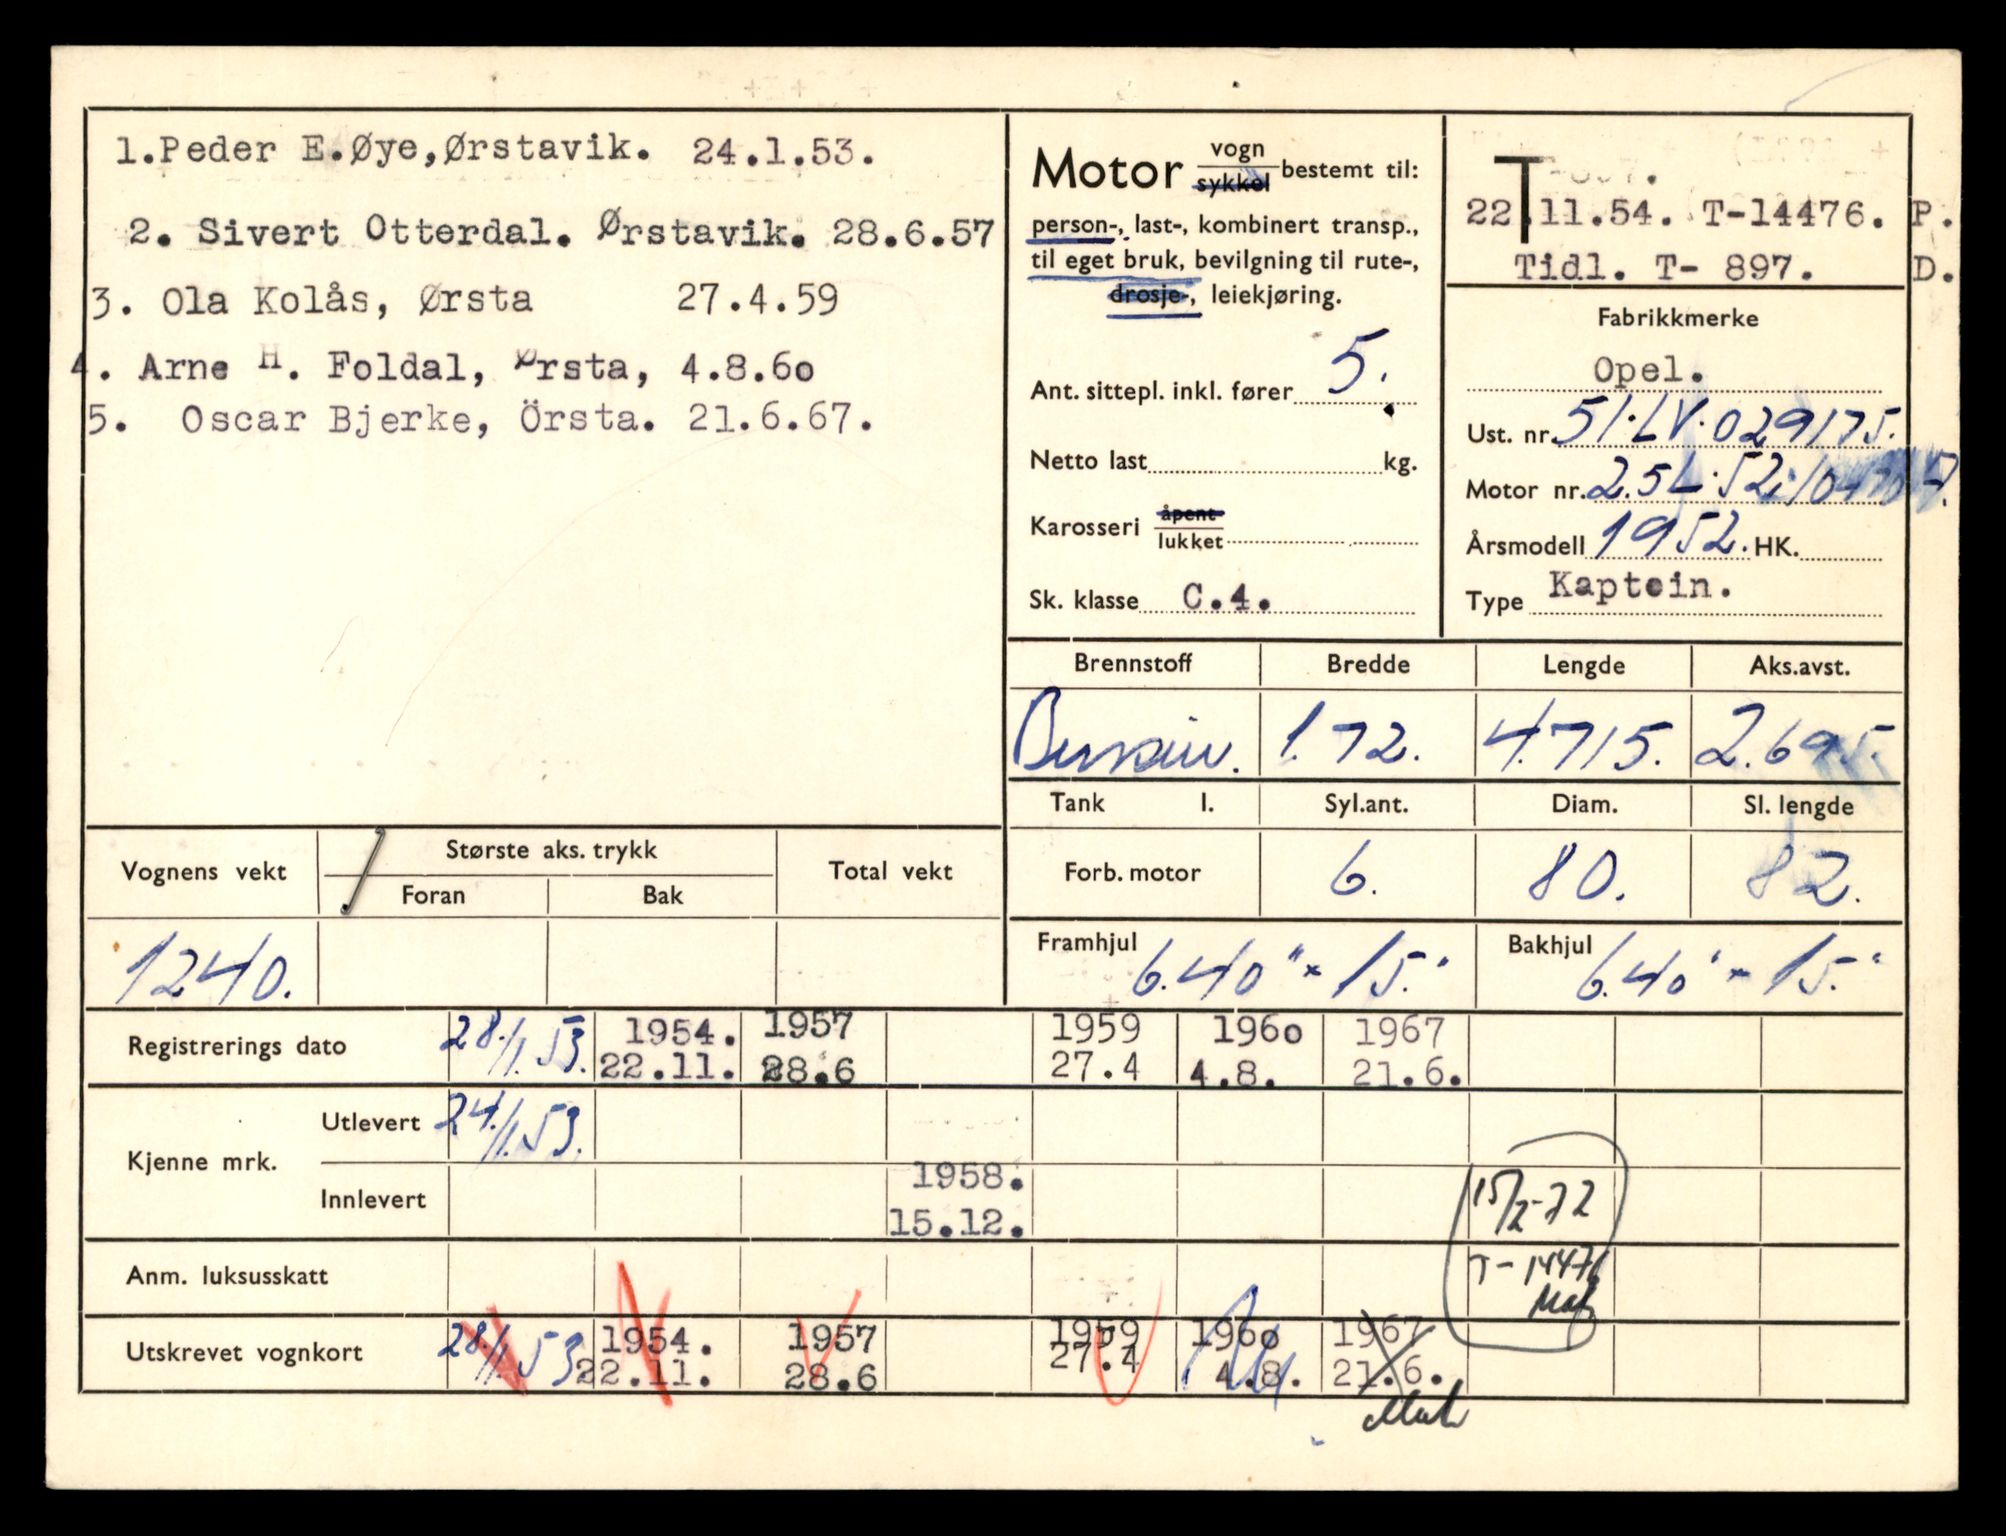 1.Peder E.Øye,Ørstavik. 24.1.53.
2. Sivert Otterdal. Ørstavik. 28.6.57
3. Ola Kolås, Ørsta 27.4.59
4. Arne H. Foldal, Ørsta, 4.8.6o
5. Oscar Bjerke, Örsta. 21.6.67.
Motor vogn
sykkel bestemt til:
person-, last-, kombinert transp.,
til eget bruk, bevilgning til rute-,
drosje-, leiekjøring.
Ant. sittepl. inkl. fører 5.
Netto last kg.
Karosseri åpent
lukket
Sk. klasse C.4.
T
22.11.54. T-14476. P.
Tidl. T- 897. D.
Fabrikkmerke
Opel.
Ust. nr. 51.LV.029175.
Motor nr. 2.5L.52:
Årsmodell 1952. HK.
Type Kaptein.
Brennstoff Bredde Lengde Aks.avst.
Bensin. 1.72. 4.715. 2.695.
Tank l. Syl.ant. Diam. Sl. lengde
Forb. motor 6. 80. 82.
Framhjul 6.40" × 15." Bakhjul 6.40" × 15."
Vognens vekt Største aks. trykk Total vekt
Foran Bak
1240.
Registrerings dato 28./1.53. 1954. 1957 1959 196o 1967
22.11. 28.6 27.4 4.8. 21.6.
Kjenne mrk. Utlevert 24./1.53.
Innlevert 1958. 15/2-72
15.12.
Anm. luksusskatt T-14476
Utskrevet vognkort 28./1.53 1954. 1957 1959 196o 1967
22.11. 28.6 27.4 4.8. 21.6.